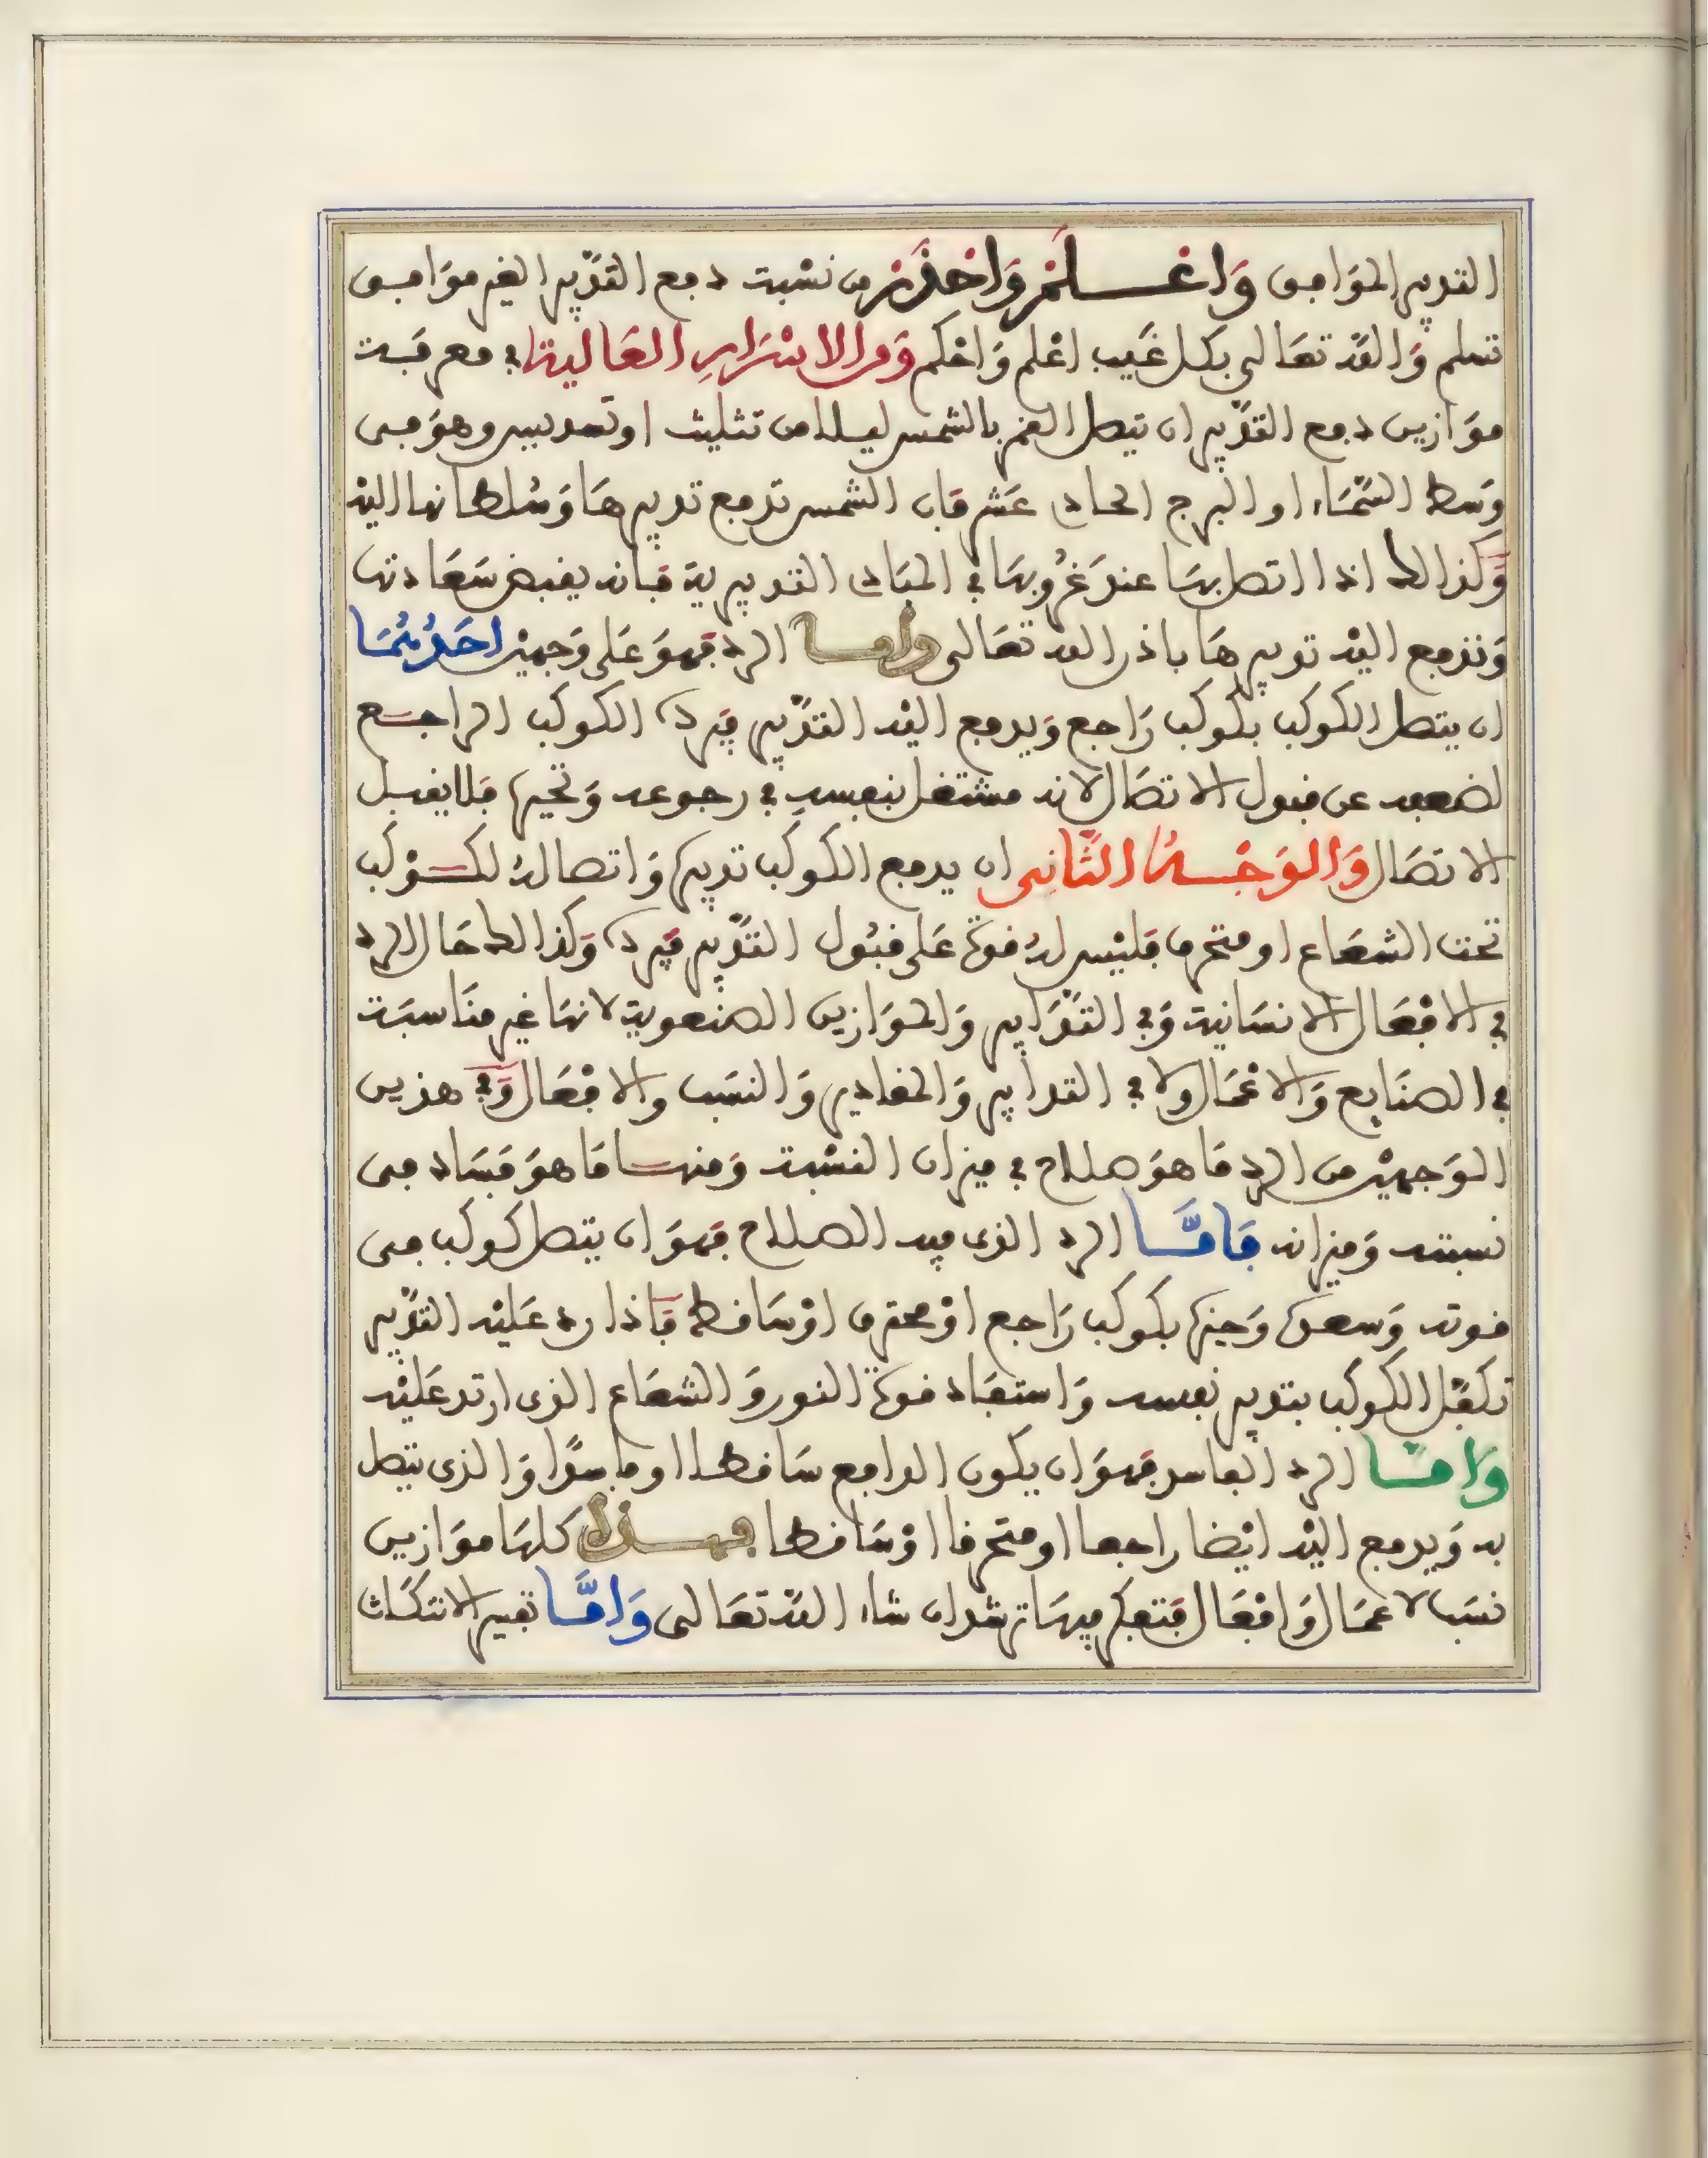 التدبير الموافق وَاعْلَمْ وَاحْذَرْ من نسْبة دفع التدْبير الغير موَافق
تسلم وَاللّه تعَالى بكل غَيب اعْلم وَاحْكم وَمن الاسْرَارِ العَالية في معرفَة
موَازين دفع التدْبير ان يتصل القمر بالشمس ليلا من تثليث او تسديس وهوَ في
وسَط السَّمَاء او البرج الحادى عَشر فَان الشمس تدفع تدبيرهَا وَسُلطانها اليه
وَكذالك اذا اتصل بهَا عند غرُوبهَا في المبَادى التدبيرية فَانه يقبض سَعَادتها
وَتدفع اليْه تدبيرهَا باذن الله تعَالى وأما الرد فَهوَ عَلى وَجهيْن احَدُهُمَا
ان يتصل الكوكب بكوكب رَاجع وَيدفع اليْه التدْبير فيَرده الكوكب الراجع
لضعفه عن قبول الاتصَال لانه مشتغل بنفسهِ في رجوعه وَتحيره فَلا يقبل
الاتصَال وَالوَجْهُ الثَّانِى ان يدفع الكوكب تدبيره وَاتصاله لكوْكب
تحت الشعَاع او متحرق فليْس لهُ قوة عَلى قبُول التدْبير فيَرده وَكذالك حَال الرد
في الافْعَال الانسَانية وَفي التدَابير وَالموَازين الصنعوية لانهَا غير منَاسبَة
في الصنَايع وَالاعْمَال ولا في التدابير وَالمقادير وَالنسَب والافْعَال وَفي هذين
الوَجهيْن من الرد مَا هوَ صلاح في ميزان النسْبة وَمنها مَا هوَ فسَاد في
نسبته وَميزانه فَامَّا الرد الذى فيه الصلاح فَهوَ ان يتصل كوكب في
قوته وَسعده وَحيزه بكوكب رَاجع اوْ محترق اوْ سَاقط فَاذا رد عَليْه التدْبير
تكفَّل الكوكب بتدبير نفسه وَاستفاد قوة النور وَالشعَاع الذى ارتد عَليْه
وَامَّا الرد الفاسد فَهوَ ان يكون الدافع سَاقطا او فاسدًا وَالذى يتصل
به وَيدفع اليْه ايْضا راجعا او متحرقا اوْ سَاقطا فهذه كلهَا موَازين
نسَب لاعمَال وَافْعَال فَتفكر فيهَا ترشد ان شاء اللّه تعَالى وَامَّا تفسير الانتكَاث